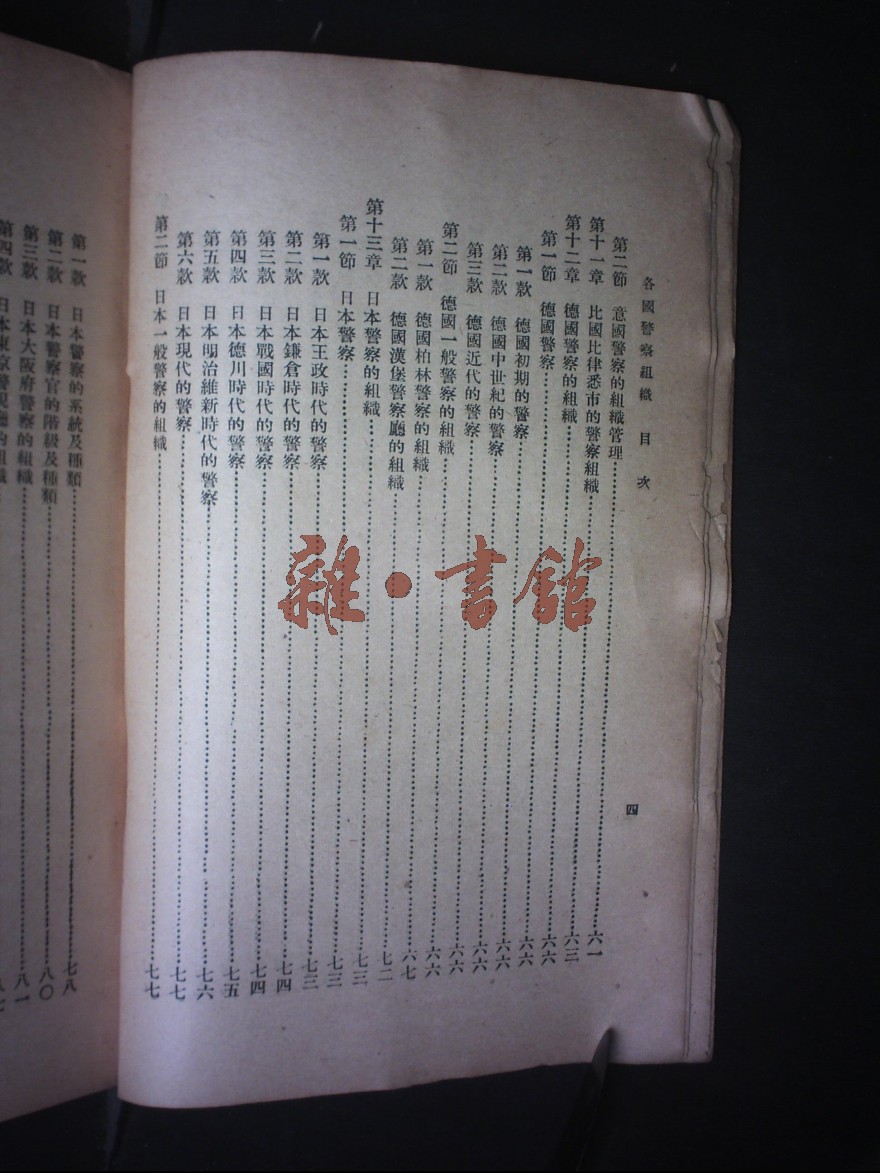 各國警察組織 目次 四
第二節 意國警察的組織管理……六一
第十一章 比國比律悉市的警察組織……六三
第十二章 德國警察的組織……六六
第一節 德國警察……六六
第一款 德國初期的警察……六六
第二款 德國中世紀的警察……六六
第三款 德國近代的警察……六六
第二節 德國一般警察的組織……六六
第一款 德國柏林警察的組織……六七
第二款 德國漢堡警察廳的組織……七二
第十三章 日本警察的組織……七三
第一節 日本警察……七三
第一款 日本王政時代的警察……七三
第二款 日本鎌倉時代的警察……七四
第三款 日本戰國時代的警察……七四
第四款 日本德川時代的警察……七五
第五款 日本明治維新時代的警察……七六
第六款 日本現代的警察……七七
第二節 日本一般警察的組織……七七
第一款 日本警察的系統及種類……七八
第二款 日本警察官的階級及種類……八〇
第三款 日本大阪府警察的組織……八一
第四款 日本東京警視廳的組織
雜·書館